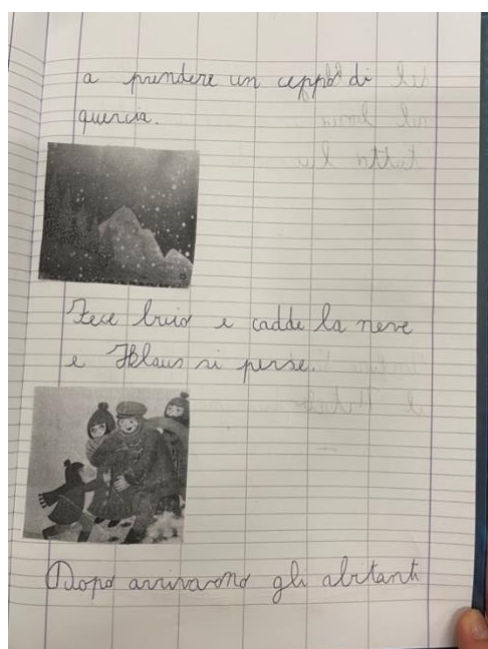 a prendere un ceppo di
quercia.
Fece buio e cadde la neve
e Klaus si perse.
Dopo arrivarono gli abitanti